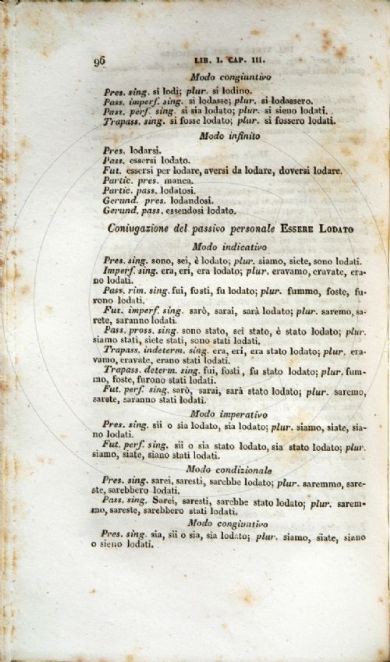 96 LIB. I. CAP. III.
Modo congiuntivo
Pres. sing. si lodi; plur. si lodino.
Pass. imperf. sing. si lodasse; plur. si lodassero.
Pass. perf. sing. si sia lodato; plur. si sieno lodati.
Trapass. sing. si fosse lodato; plur. si fossero lodati.
Modo infinito
Pres. lodarsi.
Pass. essersi lodato.
Fut. essersi per lodare, aversi da lodare, doversi lodare.
Partic. pres. manca.
Partic. pass. lodatosi.
Gerund. pres. lodandosi.
Gerund. pass. essendosi lodato.
Coniugazione del passivo personale ESSERE LODATO
Modo indicativo
Pres. sing. sono, sei, è lodato; plur. siamo, siete, sono lodati.
Imperf. sing. era, eri, era lodato; plur. eravamo, eravate, era-
no lodati.
Pass. rim. sing. fui, fosti, fu lodato; plur. fummo, foste, fu-
rono lodati.
Fut. imperf. sing. sarò, sarai, sarà lodato; plur. saremo, sa-
rete, saranno lodati.
Pass. pross. sing. sono stato, sei stato, è stato lodato; plur.
siamo stati, siete stati, sono stati lodati.
Trapass. indeterm. sing. era, eri, era stato lodato; plur. era-
vamo, eravate, erano stati lodati.
Trapass. determ. sing. fui, fosti, fu stato lodato; plur. fum-
mo, foste, furono stati lodati.
Fut. perf. sing. sarò, sarai, sarà stato lodato; plur. saremo,
sarete, saranno stati lodati.
Modo imperativo
Pres. sing. sii o sia lodato, sia lodato; plur. siamo, siate, sia-
no lodati.
Fut. perf. sing. sii o sia stato lodato, sia stato lodato; plur.
siamo, siate, siano stati lodati.
Modo condizionale
Pres. sing. sarei, saresti, sarebbe lodato; plur. saremmo, sare-
ste, sarebbero lodati.
Pass. sing. Sarei, saresti, sarebbe stato lodato; plur. sarem-
mo, sareste, sarebbero stati lodati.
Modo congiuntivo
Pres. sing. sia, sii o sia, sia lodato; plur. siamo, siate, siano
o sieno lodati.